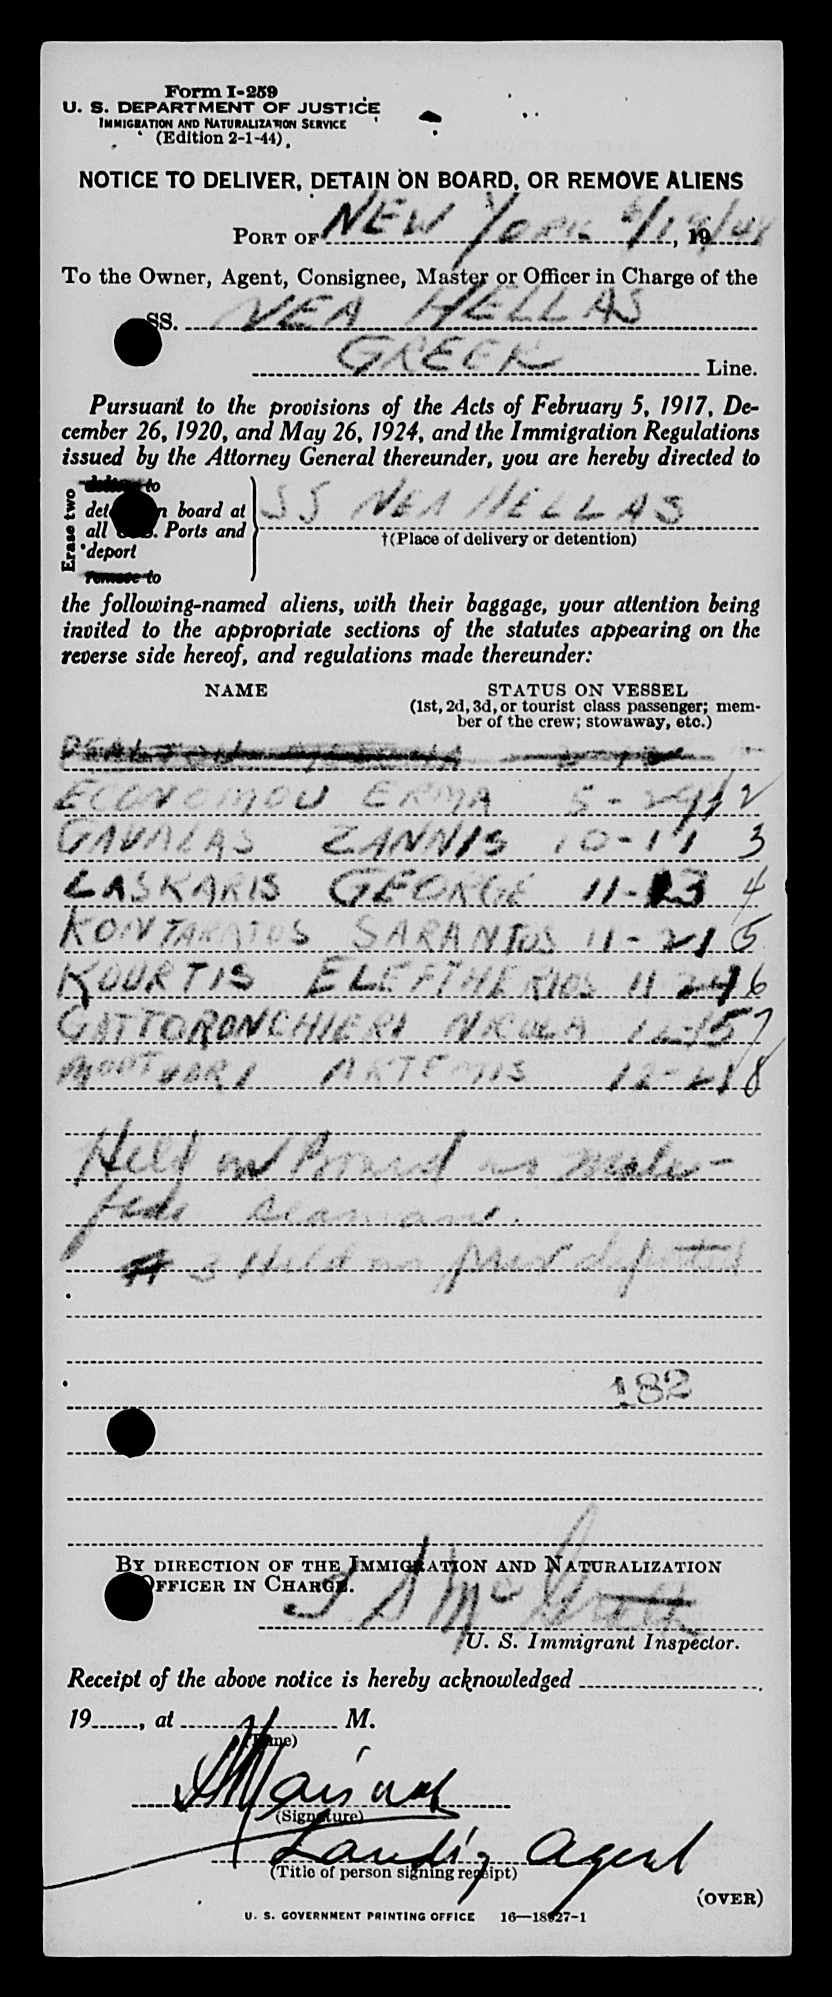 Form I-259
U. S. DEPARTMENT OF JUSTICE
IMMIGRATION AND NATURALIZATION SERVICE
(Edition 2-1-44)
NOTICE TO DELIVER, DETAIN ON BOARD, OR REMOVE ALIENS
PORT OF NEW YORK 19
To the Owner, Agent, Consignee, Master or Officer in Charge of the
SS. NEA HELLAS
GREEK Line.
Pursuant to the provisions of the Acts of February 5, 1917, De-
cember 26, 1920, and May 26, 1924, and the Immigration Regulations
issued by the Attorney General thereunder, you are hereby directed to
Erase two
to
board at SS NEA HELLAS
all Ports and
†(Place of delivery or detention)
deport
remove to
the following-named aliens, with their baggage, your attention being
invited to the appropriate sections of the statutes appearing on the
reverse side hereof, and regulations made thereunder:
NAME STATUS ON VESSEL
(1st, 2d, 3d, or tourist class passenger; mem-
ber of the crew; stowaway, etc.)
ECONOMOU ERMA 5-29 2
GAVALAS ZANNIS 10-11 3
LASKARIS GEORGE 11-13 4
KONTARATOS SARANTOS 11-21 5
KOURTIS ELEFTHERIOS 11 24 6
GATTORONCHIERI NICOLA 12-15 7
ARTEMIS 12-21 8
Held on Board as mala-
fide seamans.
# 3 Held on prior
182
BY DIRECTION OF THE IMMIGRATION AND NATURALIZATION
OFFICER IN CHARGE.
McGrath
U. S. Immigrant Inspector.
Receipt of the above notice is hereby acknowledged
19, at M.
(Time)
(Signature)
Landig Agent
(Title of person signing receipt)
(OVER)
U. S. GOVERNMENT PRINTING OFFICE 16—18927-1